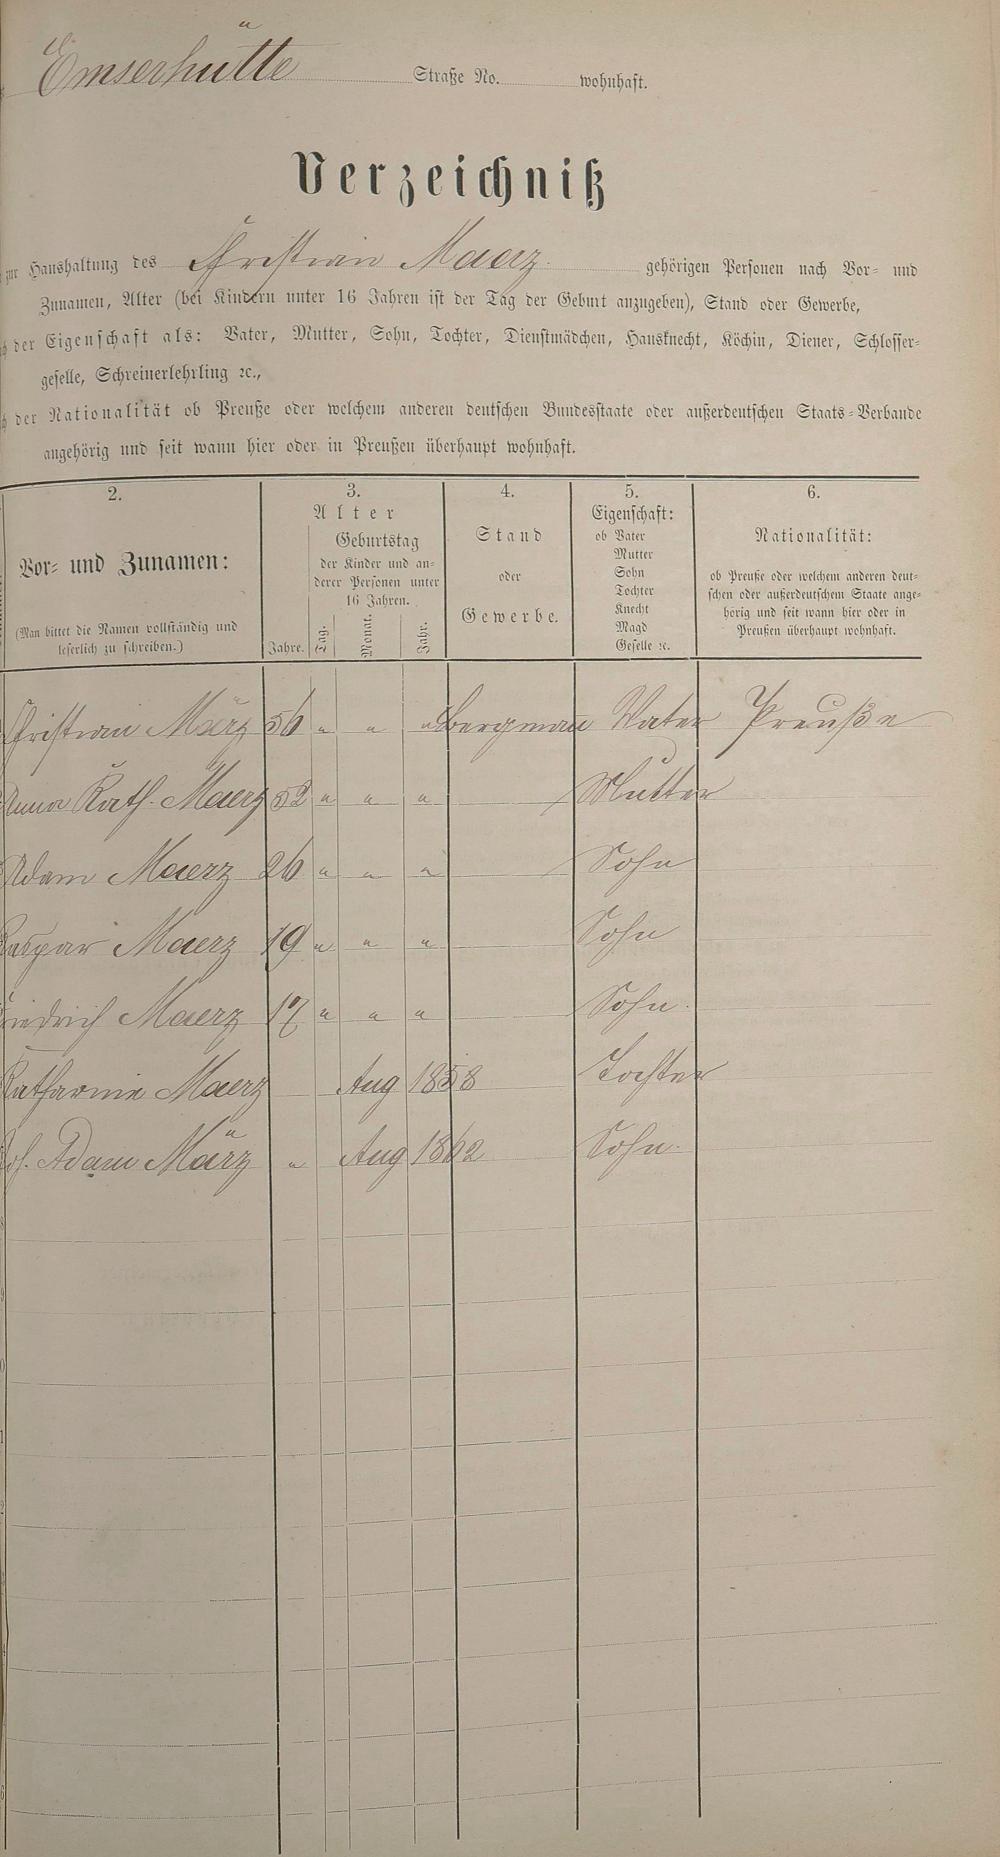 Emserhütte Straße No. wohnhaft.
Verzeichniß
zur Haushaltung des Christian Maerz gehörigen Personen nach Vor- und
Zunamen, Alter (bei Kindern unter 16 Jahren ist der Tag der Geburt anzugeben), Stand oder Gewerbe,
der Eigenschaft als: Vater, Mutter, Sohn, Tochter, Dienstmädchen, Hausknecht, Köchin, Diener, Schlosser-
geselle, Schreinerlehrling ꝛc.,
der Nationalität ob Preuße oder welchem anderen deutschen Bundesstaate oder außerdeutschen Staats-Verbande
angehörig und seit wann hier oder in Preußen überhaupt wohnhaft.
2.
Vor- und Zunamen:
(Man bittet die Namen vollständig und
leserlich zu schreiben.)
3.
Alter
Jahre.
Geburtstag
der Kinder und an-
derer Personen unter
16 Jahren.
Tag.
Monat.
Jahr.
4.
Stand
oder
Gewerbe.
5.
Eigenschaft:
ob Vater
Mutter
Sohn
Tochter
Knecht
Magd
Geselle ꝛc.
6.
Nationalität:
ob Preuße oder welchem anderen deut-
schen oder außerdeutschem Staate ange-
hörig und seit wann hier oder in
Preußen überhaupt wohnhaft.
Christian März 56 " " " Bergman̄ Vater Preuße
Anna Kath. Maerz 52 " " " Mutter
Adam Maerz 26 " " " Sohn
Caspar Maerz 19 " " " Sohn
Friedrich Maerz 17 " " " Sohn.
Katharine Maerz Aug 1858 Tochter
Joh. Adam März " Aug 1862 Sohn.